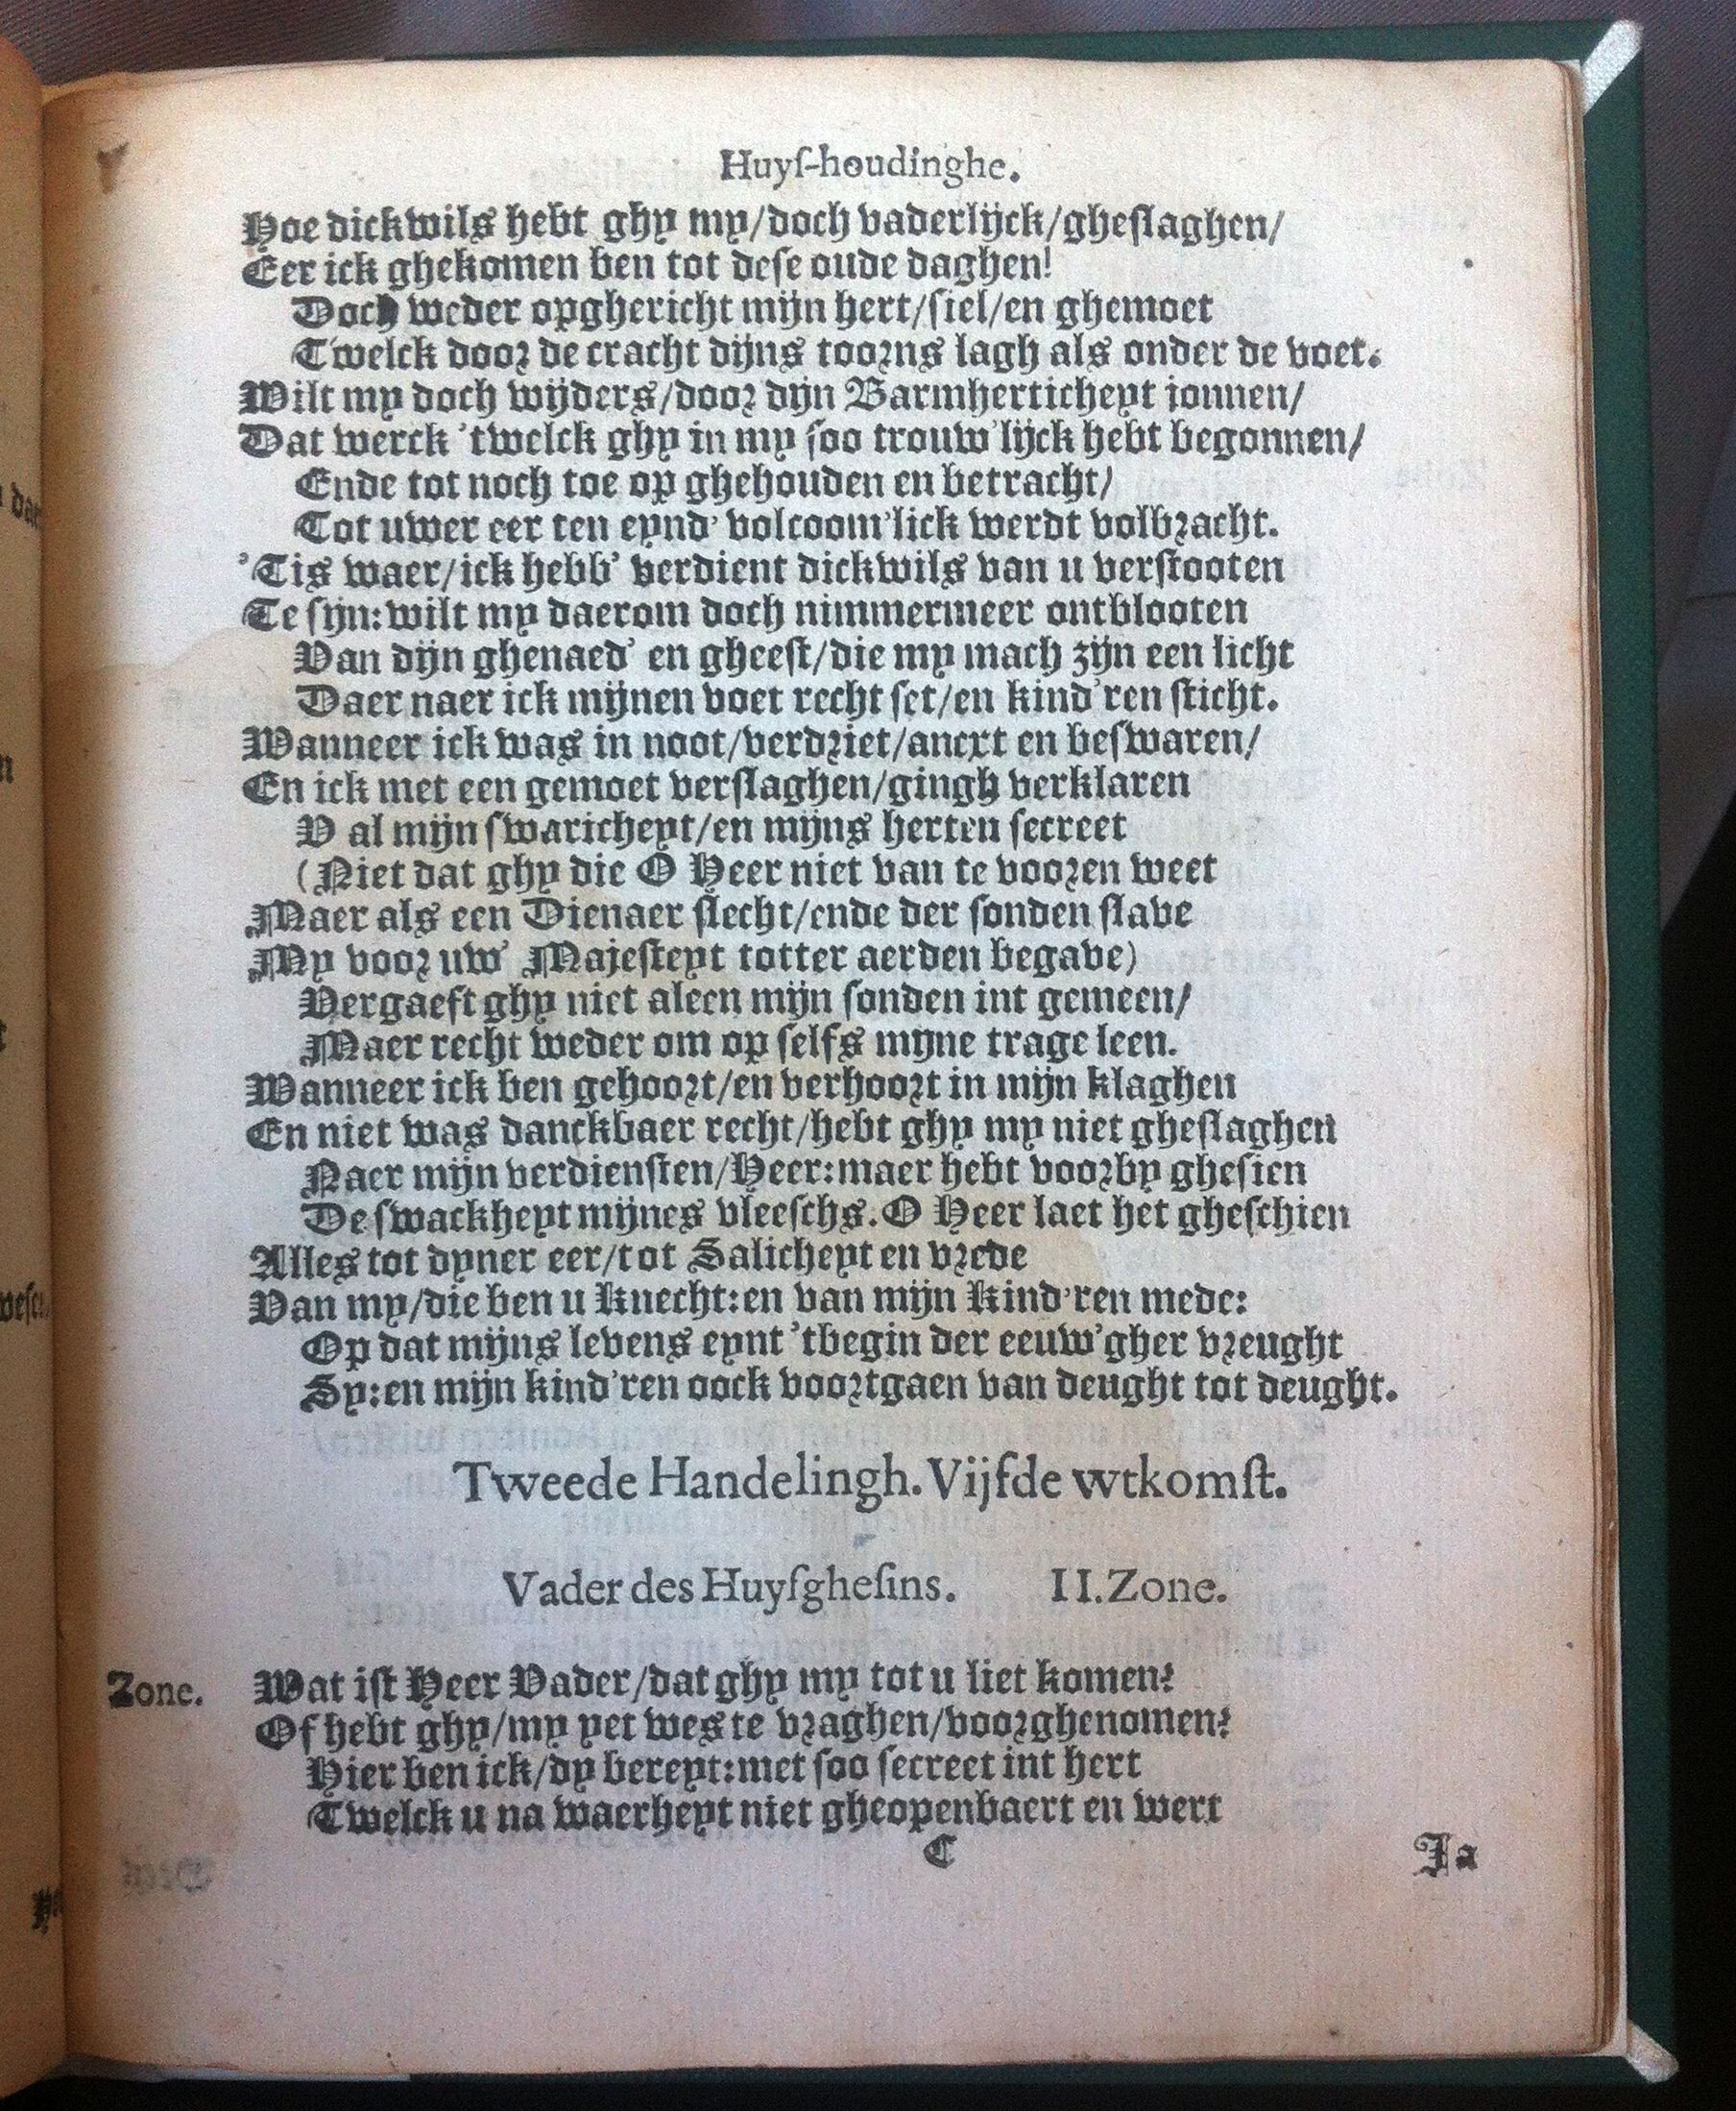 Huyſ-houdinghe.
Hoe dickwils hebt ghy my/doch vaderlijck/gheſlaghen/
Eer ick ghekomen ben tot deſe oude daghen!
Doch weder opghericht mijn hert/ſiel/en ghemoet
Twelck door de cracht dijns toorns lagh als onder de voet.
Wilt my doch wijders/door dijn Barmherticheyt jonnen/
Dat werck 'twelck ghy in my ſoo trouw'lijck hebt begonnen/
Ende tot noch toe op ghehouden en betracht/
Tot uwer eer ten eynd' volcoom'lick werdt volbracht.
'Tis waer/ick hebb' verdient dickwils van u verſtooten
Te ſijn:wilt my daerom doch nimmermeer ontblooten
Van dijn ghenaed' en gheeſt/die my mach zijn een licht
Daer naer ick mijnen voet recht ſet/en kind'ren ſticht.
Wanneer ick was in noot/verdriet/ancxt en beſwaren/
En ick met een gemoet verſlaghen/gingh verklaren
V al mijn ſwaricheyt/en mijns herten ſecreet
(Niet dat ghy die O Heer niet van te vooren weet
Maer als een Dienaer ſlecht/ende der ſonden ſlave
My voor uw' Majeſteyt totter aerden begave)
Vergaeft ghy niet aleen mijn ſonden int gemeen/
Maer recht weder om op ſelfs mijne trage leen.
Wanneer ick ben gehoort/en verhoort in mijn klaghen
En niet was danckbaer recht/hebt ghy my niet gheſlaghen
Naer mijn verdienſten/Heer:maer hebt voorby gheſien
De ſwackheyt mijnes vleeſchs. O Heer laet het gheſchien
Alles tot dyner eer/tot Salicheyt en vrede
Van my/die ben u Knecht:en van mijn Kind'ren mede:
Op dat mijns levens eynt 'tbegin der eeuw'gher vreught
Sy:en mijn kind'ren oock voortgaen van deught tot deught.
Tweede Handelingh. Vijfde wtkomſt.
Vader des Huyſgheſins. II. Zone.
Zone. Wat iſt Heer Vader/dat ghy my tot u liet komen?
Of hebt ghy/my yet wes te vraghen/voorghenomen?
Hier ben ick/dy bereyt:met ſoo ſecreet int hert
Twelck u na waerheyt niet gheopenbaert en wert
C Ja